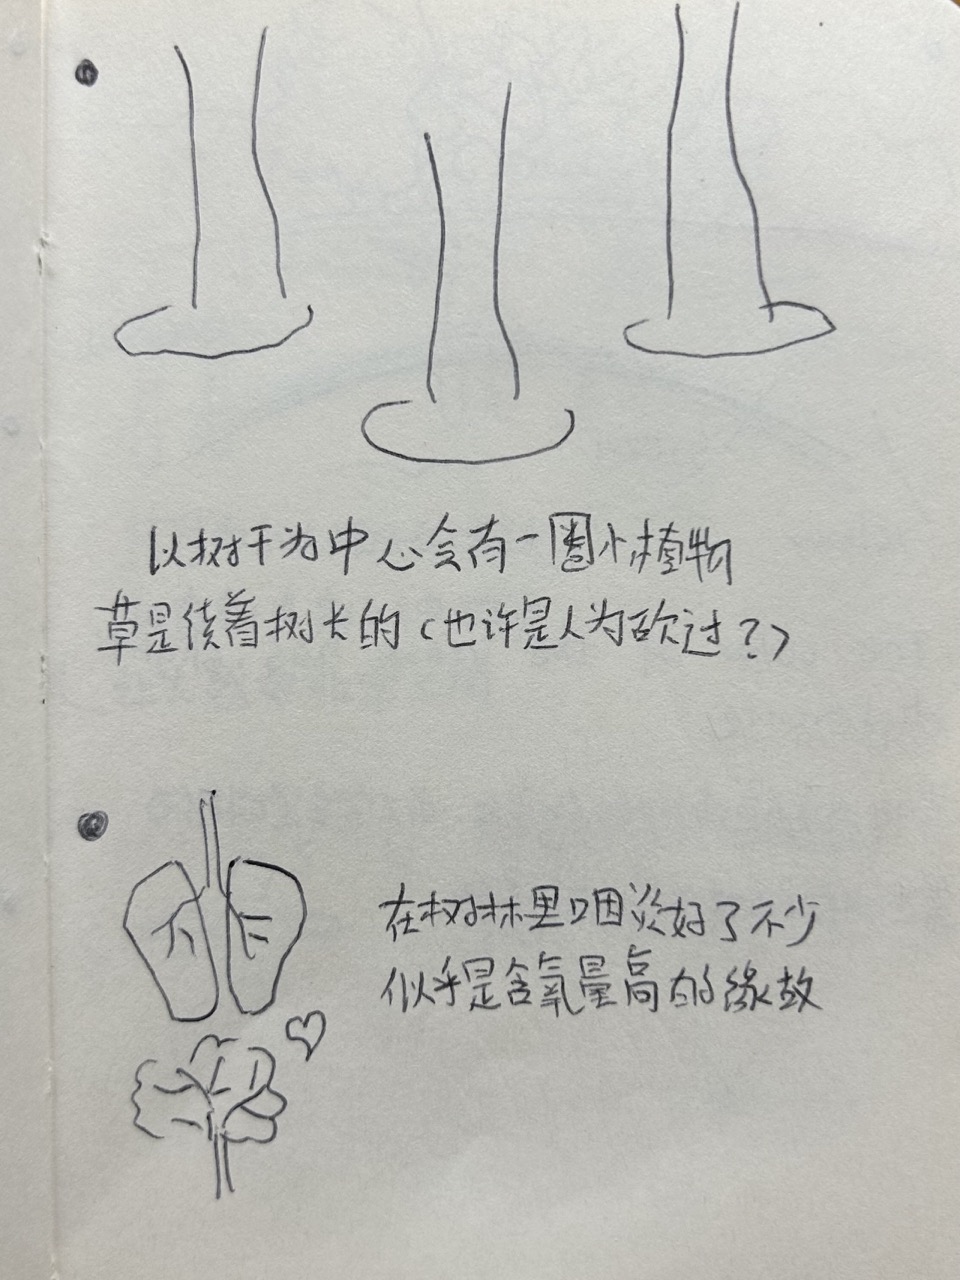 以树干为中心会有一圈小植物
草是绕着树长的（也许是人为砍过？）
在树林里咽炎好了不少
似乎是含氧量高的缘故